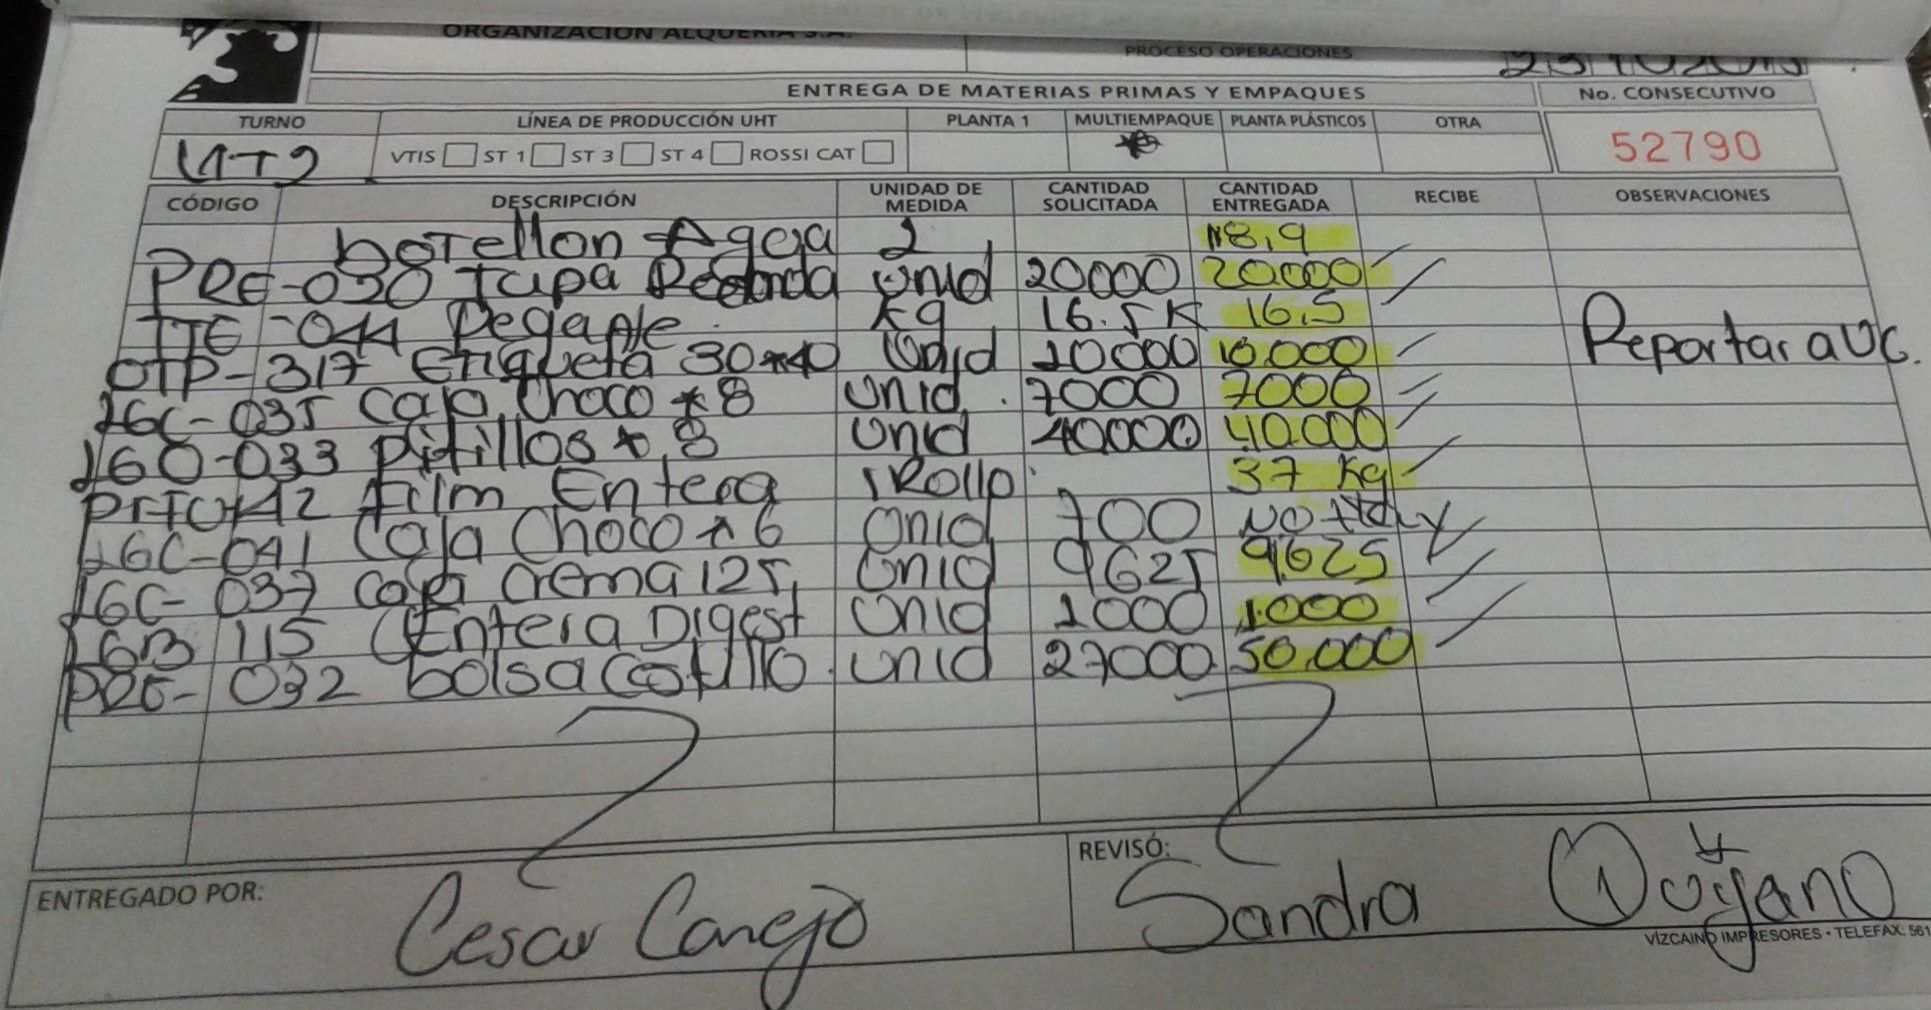 ORGANIZACIÓN ALQUERIA S.A.
PROCESO OPERACIONES
ENTREGA DE MATERIAS PRIMAS Y EMPAQUES
No. CONSECUTIVO
TURNO LÍNEA DE PRODUCCIÓN UHT PLANTA 1 MULTIEMPAQUE PLANTA PLÁSTICOS OTRA
52790
VTIS ST 1 ST 3 ST 4 ROSSI CAT
CÓDIGO DESCRIPCIÓN UNIDAD DE MEDIDA CANTIDAD SOLICITADA CANTIDAD ENTREGADA RECIBE OBSERVACIONES
botellon Agua 2 18,9
PRE-030 Tapa Redonda Unid 20000 20000
TTE-044 Pegante Kg 16.5K 16,5
OTP-317 Etiqueta 30*40 Unid 10000 10.000 Reportar a UC.
16C-035 Caja Choco *8 Unid. 7000 7000
160-033 Pitillos * 8 Unid 40000 40.000
Film Entera 1 Rollo 37 Kg
16C-041 Caja Choco *6 Unid 700 NO Hay
16C-037 Caja Crema 125 Unid 9625 9.625
16B 115 Entera Digest Unid 1000 1.000
PRE-032 bolsa Unid 27000 50.000
ENTREGADO POR: Cesar Canejo
REVISÓ: Sandra
VÍZCAINO IMPRESORES • TELEFAX: 561